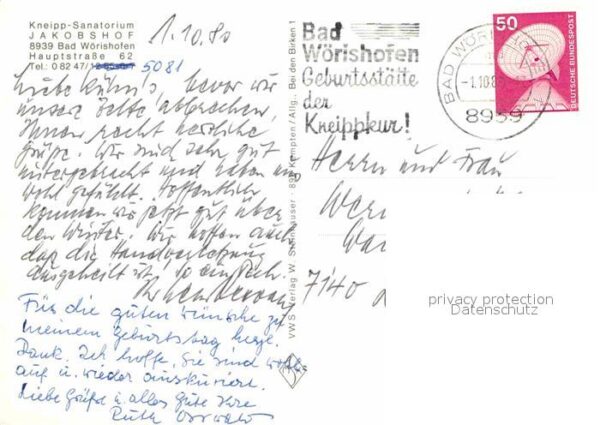 Kneipp-Sanatorium
JAKOBSHOF
8939 Bad Wörishofen
Hauptstraße 62
Tel.: 0 82 47/
5081
1.10.80
Liebe Kühn's, bevor wir
unsere Zelte abbrechen,
Ihnen recht herzliche
Grüße. Wir sind sehr gut
untergebracht und haben uns
wohl gefühlt. Hoffentlich
kommen wir jetzt gut über
den Winter. Wir hoffen auch
daß die Handverletzung
ausgeheilt ist,
Ihr
Für die guten Wünsche zu
meinem Geburtstag herzl.
Dank. Ich hoffe, Sie sind wohl-
auf u. wieder auskuriert.
Liebe Grüße u. alles Gute Ihre
Ruth Osswald
VWS Verlag W. Steinhauser · 896 Kempten / Allg., Bei den Birken 1
Bad
Wörishofen
Geburtsstätte
der
Kneippkur!
BAD WÖRISHOFEN
-1.10.80
8939
50
DEUTSCHE BUNDESPOST
Herrn und Frau
Wer
7140
privacy protection
Datenschutz